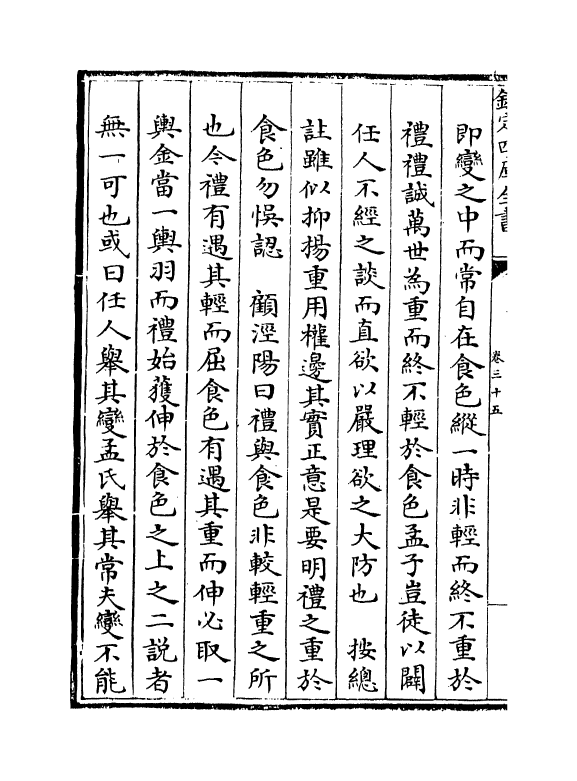 欽定四庫全書
卷三十五
即變之中而常自在食色縱一時非輕而終不重於
禮禮誠萬世為重而終不輕於食色孟子豈徒以闢
任人不經之談而直欲以嚴理欲之大防也　按總
註雖似抑揚重用權邊其實正意是要明禮之重於
食色勿悞認　顧涇陽曰禮與食色非較輕重之所
也令禮有遇其輕而屈食色有遇其重而伸必取一
輿金當一輿羽而禮始獲伸於食色之上之二説者
無一可也或曰任人舉其變孟氏舉其常夫變不能